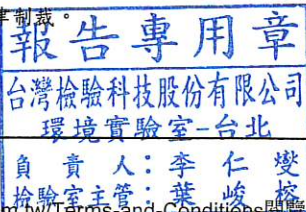 律制裁。
報告專用章
台灣檢驗科技股份有限公司
環境實驗室-台北
負責人：李仁燮
檢驗室主管：葉峻榕
m.tw/Terms-and-Conditions閱覽